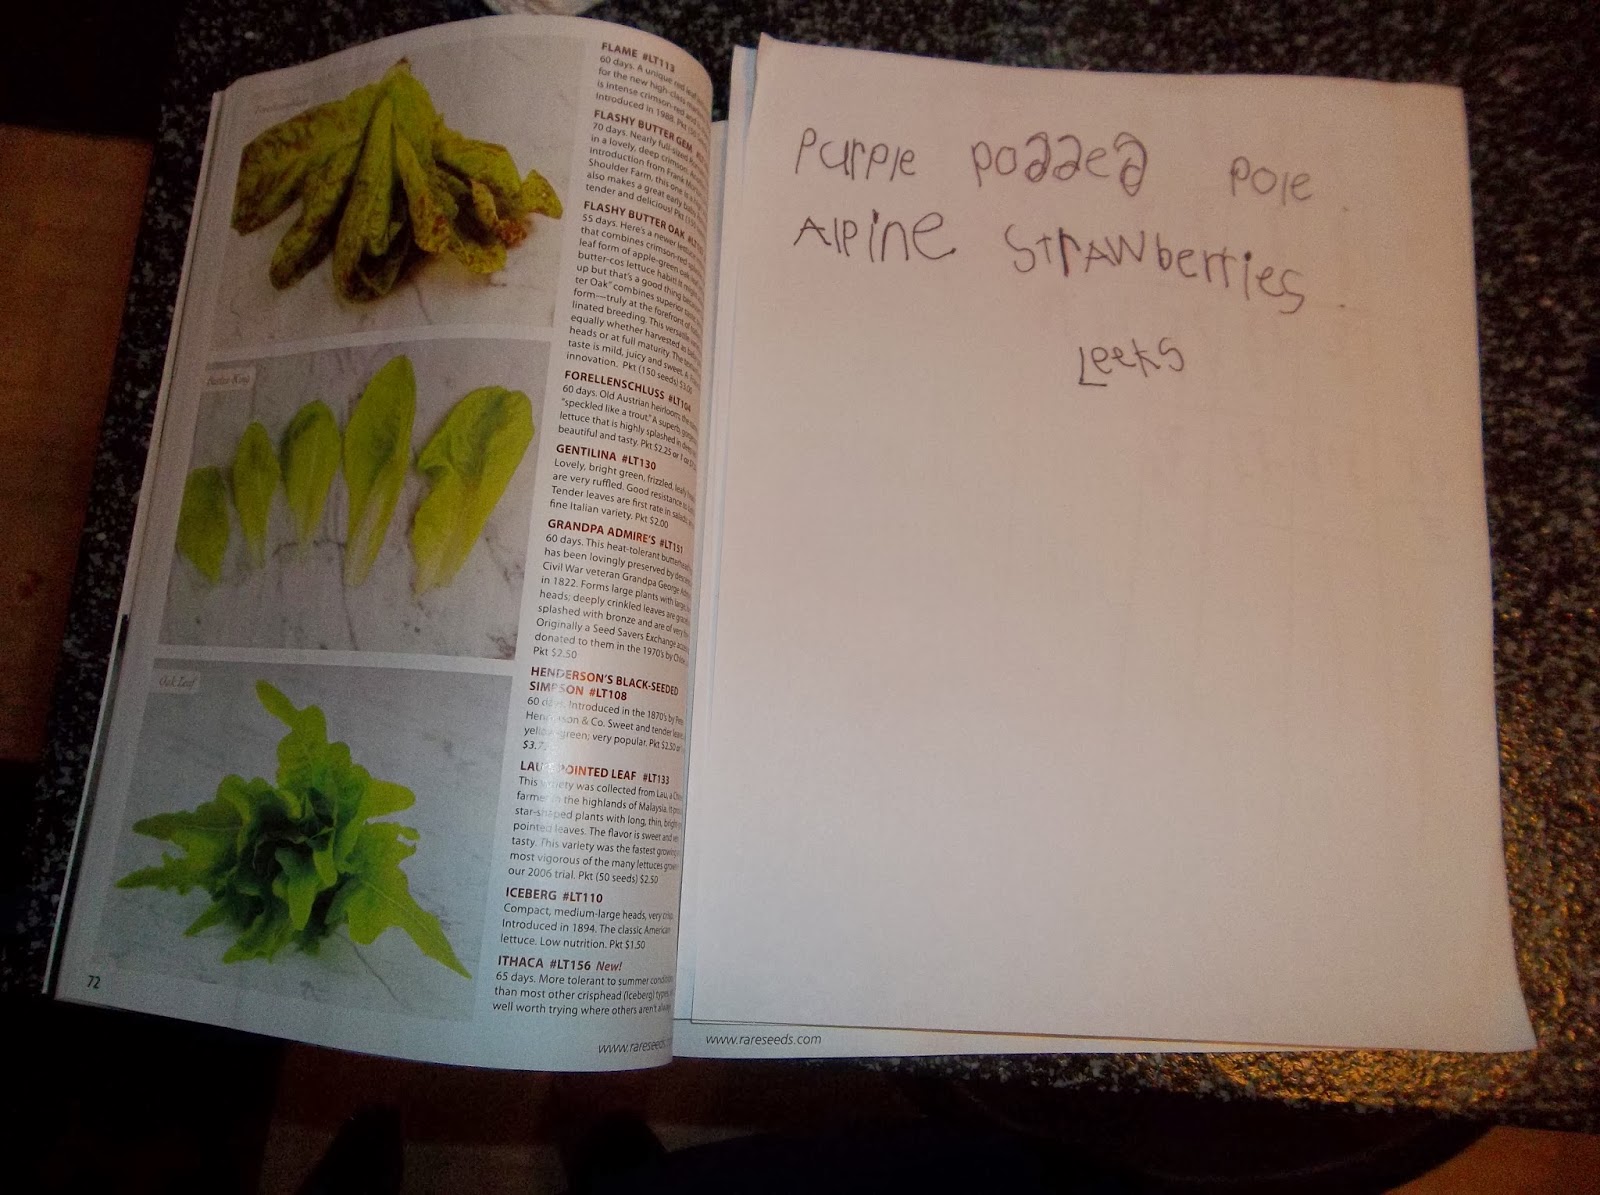 FLAME #LT113
60 days. A unique red leaf
for the new high-class
is intense crimson-red and
Introduced in 1988. Pkt
FLASHY BUTTER GEM
70 days. Nearly full-sized
in a lovely, deep crimson.
introduction from Frank
Shoulder Farm, this one is a
also makes a great early baby
tender and delicious! Pkt
FLASHY BUTTER OAK
55 days. Here's a newer lettuce
that combines crimson-red
leaf form of apple-green oak
butter-cos lettuce habit! It might
up but that's a good thing
ter Oak" combines superior
form—truly at the forefront of
linated breeding. This versatile
equally whether harvested as baby
heads or at full maturity. The
taste is mild, juicy and sweet. A
innovation. Pkt (150 seeds)
FORELLENSCHLUSS #LT104
60 days. Old Austrian heirloom, the
"speckled like a trout." A superb,
lettuce that is highly splashed in
beautiful and tasty. Pkt $2.25 or
GENTILINA #LT130
Lovely, bright green, frizzled, leafy
are very ruffled. Good resistance to
Tender leaves are first rate in salads,
fine Italian variety. Pkt $2.00
GRANDPA ADMIRE'S #LT151
60 days. This heat-tolerant butterhead
has been lovingly preserved by
Civil War veteran Grandpa George
in 1822. Forms large plants with large,
heads; deeply crinkled leaves are
splashed with bronze and are of very
Originally a Seed Savers Exchange
donated to them in the 1970's by
Pkt $2.50
HENDERSON'S BLACK-SEEDED
SIMPSON #LT108
60 Introduced in the 1870's by
& Co. Sweet and tender
green; very popular. Pkt $2.50 or
POINTED LEAF #LT133
This variety was collected from Lau, a
farmer in the highlands of Malaysia. It
star-shaped plants with long, thin, bright
pointed leaves. The flavor is sweet and
tasty. This variety was the fastest growing
most vigorous of the many lettuces
our 2006 trial. Pkt (50 seeds) $2.50
ICEBERG #LT110
Compact, medium-large heads, very
Introduced in 1894. The classic American
lettuce. Low nutrition. Pkt $1.50
ITHACA #LT156 New!
65 days. More tolerant to summer
than most other crisphead (Iceberg) types,
well worth trying where others aren't
Oak Leaf
72
www.rareseeds
Purple podded pole.
Alpine Strawberries.
Leeks
www.rareseeds.com